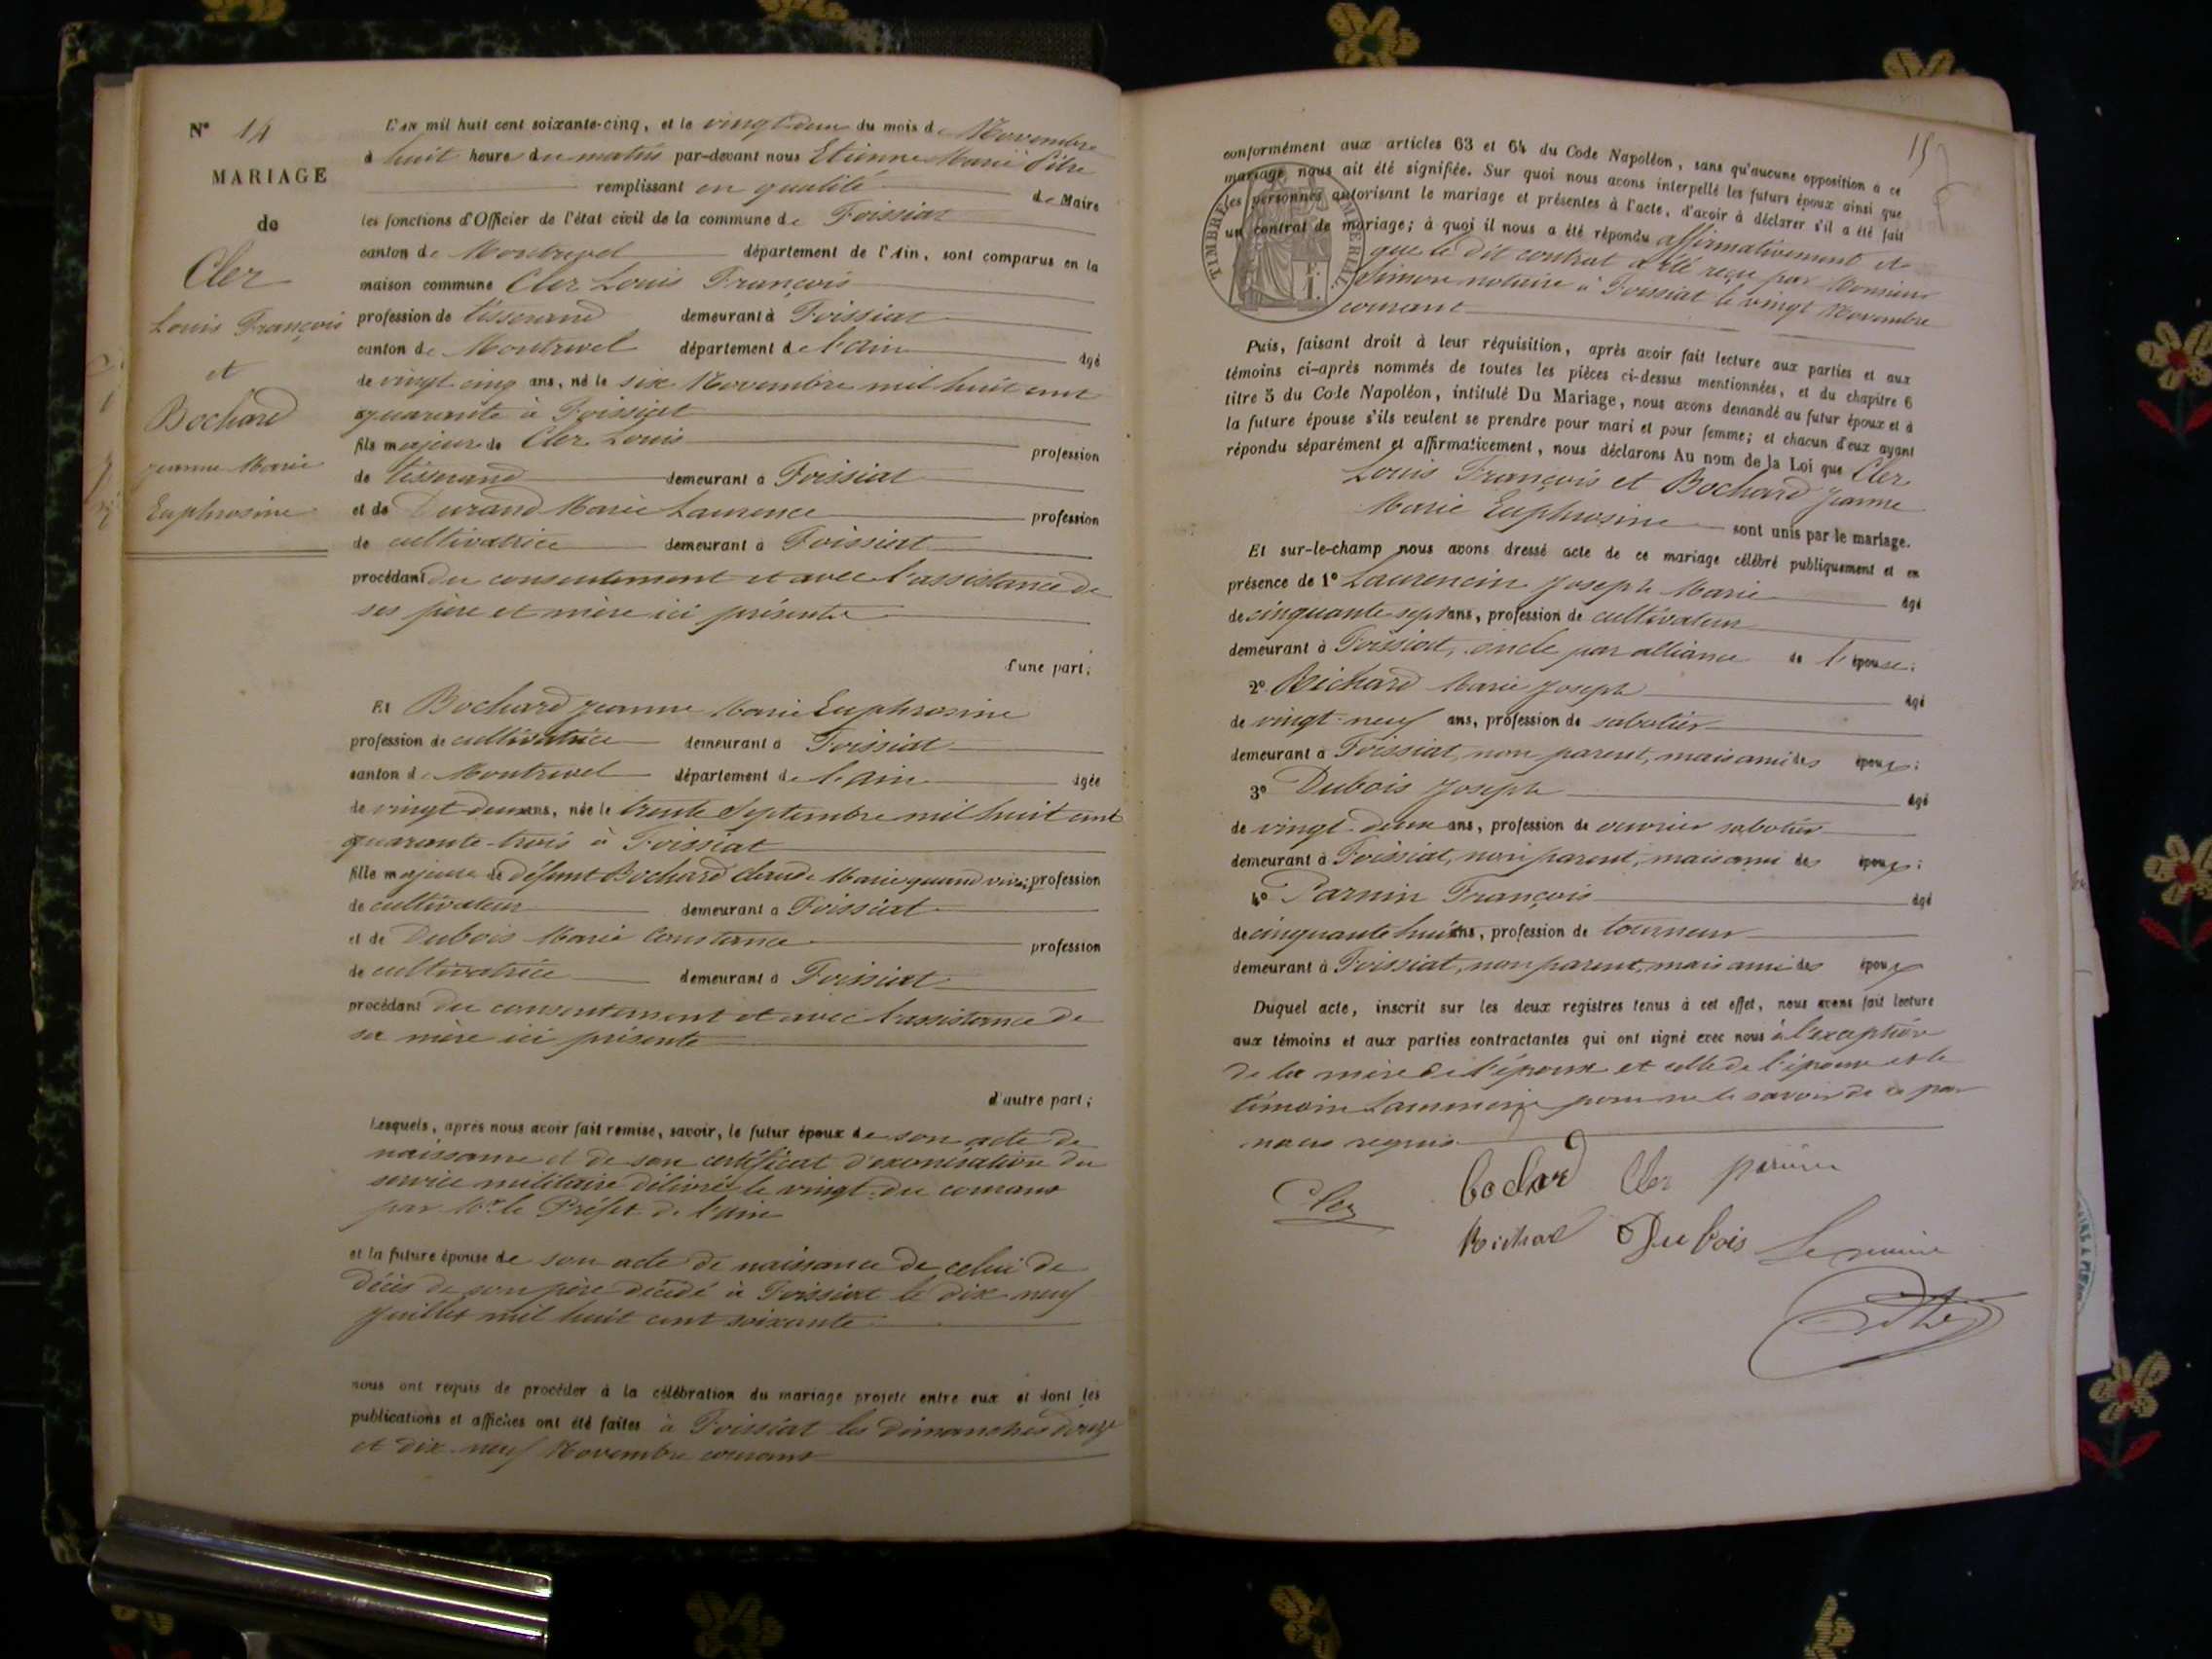 N° 14
MARIAGE
de
Cler
Louis François
et
Bochard
Jeanne Marie
Euphrosine
L'an mil huit cent soixante-cinq, et le vingt deux du mois de Novembre
à huit heure du matin par-devant nous Etienne Marie Pitre
remplissant en qualité de Maire
les fonctions d'Officier de l'état civil de la commune de Foissiat
canton de Montrevel département de l'Ain, sont comparus en la
maison commune Cler Louis François
profession de tisserand demeurant à Foissiat
canton de Montrevel département de l'Ain âgé
de vingt cinq ans, né le six Novembre mil huit cent
quarante à Foissiat
fils majeur de Cler Louis profession
de tisserand demeurant à Foissiat
et de Durand Marie Laurence profession
de cultivatrice demeurant à Foissiat
procédant du consentement et avec l'assistance de
ses père et mère ici présents
d'une part;
Et Bochard Jeanne Marie Euphrosine
profession de cultivatrice demeurant à Foissiat
canton de Montrevel département de l'Ain âgée
de vingt deux ans, née le trente Septembre mil huit cent
quarante-trois à Foissiat
fille majeure de défunt Bochard Claude Marie quand vivait profession
de cultivateur demeurant à Foissiat
et de Dubois Marie Constance profession
de cultivatrice demeurant à Foissiat
procédant du consentement et avec l'assistance de
sa mère ici présente
d'autre part;
Lesquels, après nous avoir fait remise, savoir, le futur époux de son acte de
naissance et de son certificat d'exonération du
service militaire délivré le vingt du courant
par Mr le Préfet de l'Ain
et la future épouse de son acte de naissance de celui de
décès de son père décédé à Foissiat le dix neuf
Juillet mil huit cent soixante
nous ont requis de procéder à la célébration du mariage projeté entre eux et dont les
publications et affiches ont été faites à Foissiat les dimanches douze
et dix neuf Novembre courant
157
conformément aux articles 63 et 64 du Code Napoléon, sans qu'aucune opposition à ce
mariage nous ait été signifiée. Sur quoi nous avons interpellé les futurs époux ainsi que
les personnes autorisant le mariage et présentes à l'acte, d'avoir à déclarer s'il a été fait
un contrat de mariage; à quoi il nous a été répondu affirmativement et
que le dit contrat a été reçu par Monsieur
Simon notaire à Foissiat le vingt Novembre
courant
TIMBRE IMPERIAL
Puis, faisant droit à leur réquisition, après avoir fait lecture aux parties et aux
témoins ci-après nommés de toutes les pièces ci-dessus mentionnées, et du chapitre 6
titre 5 du Code Napoléon, intitulé Du Mariage, nous avons demandé au futur époux et à
la future épouse s'ils veulent se prendre pour mari et pour femme; et chacun d'eux ayant
répondu séparément et affirmativement, nous déclarons Au nom de la Loi que Cler
Louis François et Bochard Jeanne
Marie Euphrosine sont unis par le mariage.
Et sur-le-champ nous avons dressé acte de ce mariage célébré publiquement et en
présence de 1° Laurencin Joseph Marie âgé
de cinquante sept ans, profession de cultivateur
demeurant à Foissiat, oncle par alliance de l'épouse;
2° Richard Marie Joseph âgé
de vingt-neuf ans, profession de sabotier
demeurant à Foissiat, non parent, mais ami des époux;
3° Dubois Joseph âgé
de vingt-deux ans, profession de ouvrier sabotier
demeurant à Foissiat, non parent, mais ami des époux;
4° Parnin François âgé
de cinquante huit ans, profession de tourneur
demeurant à Foissiat, non parent, mais ami des époux
Duquel acte, inscrit sur les deux registres tenus à cet effet, nous avons fait lecture
aux témoins et aux parties contractantes qui ont signé avec nous à l'exception
de la mère de l'époux et celle de l'épouse et le
témoin Laurencin pour ne le savoir de ce par
nous requis
Cler Bochard Cler parnin
Richard Dubois Le maire
Pitre